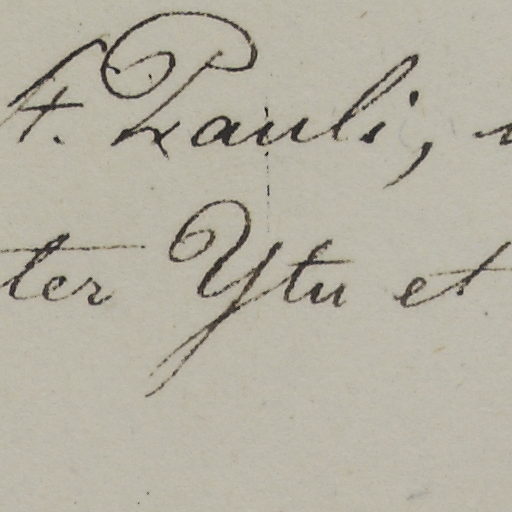 A. Pauli,
ter Ytu et